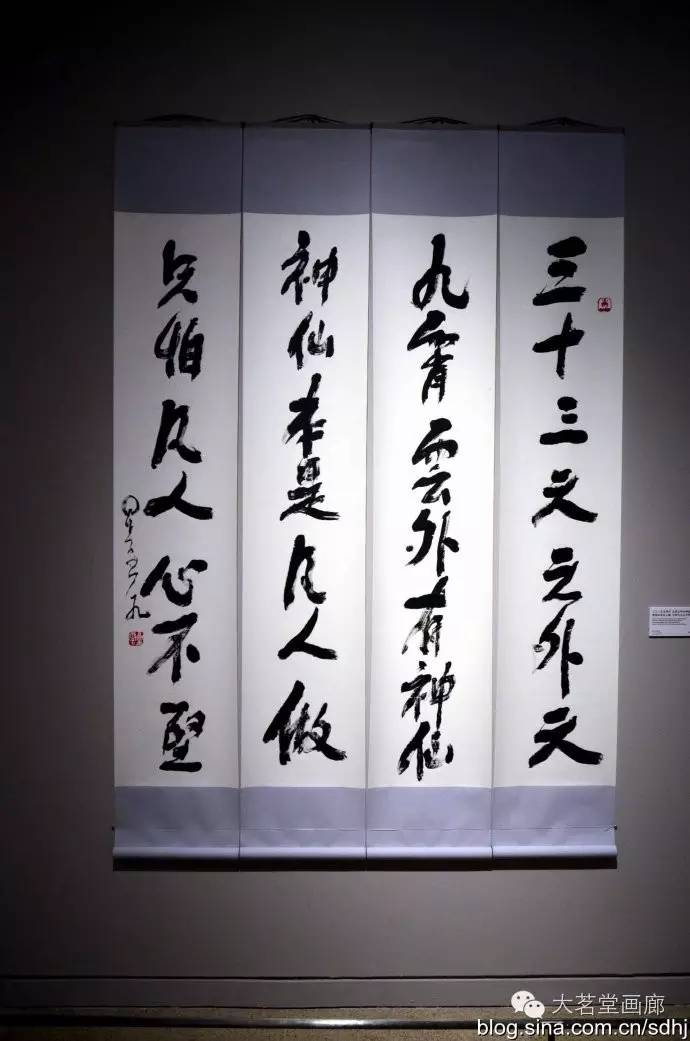 三十三天天外天
九霄雲外有神仙
神仙本是凡人做
只怕凡人心不堅
大茗堂画廊
blog.sina.com.cn/sdhj